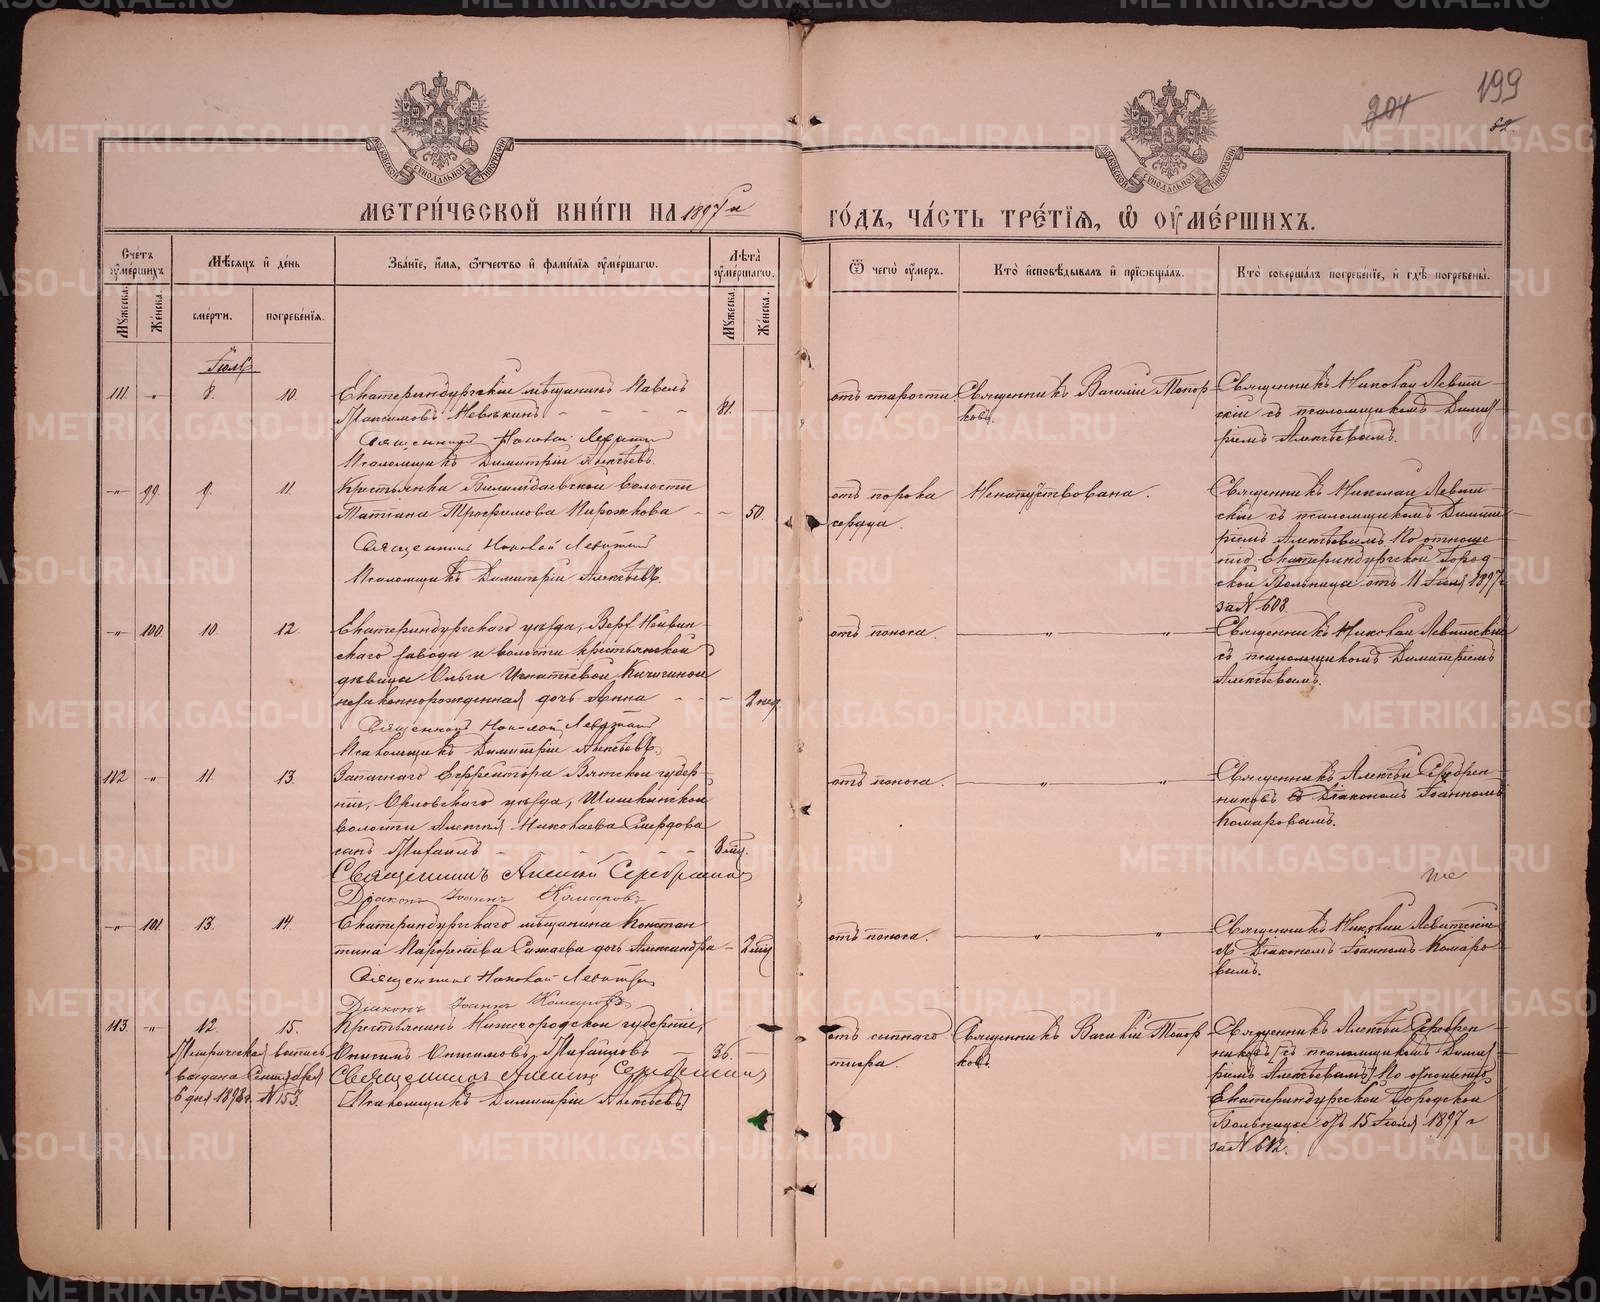 199
204
82
МОСКОВСКОЙ СѴНОДАЛЬНОЙ ТИПОГРАФІИ
МОСКОВСКОЙ СѴНОДАЛЬНОЙ ТИПОГРАФІИ
МЕТРИ́ЧЕСКОЙ КНИ́ГИ НА 1897й ГО́ДЪ, ЧА́СТЬ ТРЕ́ТЇѦ, Ѡ ОУМЕ́РШИХЪ.
Сче́тъ оумершихъ
Мѣ́сѧцъ и҆ де́нь
Зва́нїе, и҆́мѧ, ѻ҆́тчество и҆ фами́лїѧ оуме́ршагѡ.
Лѣ́та оумершагѡ.
Ѿ чегѡ̀ оу҆́меръ.
Кто̀ и҆сповѣ́дывалъ и҆ прїѡбща́лъ.
Кто̀ соверша́лъ погребе́нїе, и҆ гдѣ̀ погребены̀.
Мꙋ́жеска.
Же́нска.
сме́рти.
погребе́нїѧ.
Мꙋ́жеска.
Же́нска.
Іюль
111. „ 8. 10. Екатеринбургскій мѣщанинъ Павелъ
Максимовъ Невѣкинъ 81.
Священникъ Николай Левитскій
Псаломщикъ Димитрій Алексѣевъ.
отъ старости. Священникъ Василій Топорковъ.
Священникъ Николай Левитскій съ псаломщикомъ Димитріемъ Алексѣевымъ.
„ 99. 9. 11. Крестьянка Билимбаевской волости
Татіана Трофимова Пирожкова 50.
Священникъ Николай Левитскій
Псаломщикъ Димитрій Алексѣевъ.
отъ порока сердца. Ненапутствована.
Священникъ Николай Левитскій съ псаломщикомъ Димитріемъ Алексѣевымъ По отношенію Екатеринбургской Городской Больницы отъ 11 Іюля 1897 г
за № 608.
„ 100 10 12. Екатеринбургскаго уѣзда, Верх Нейвин-
скаго завода и волости крестьянской
дѣвицы Ольги Игнатіевой Кичигиной
незаконнорожденная дочь Анна 2 нед.
Священникъ Николай Левитскій
Псаломщикъ Димитрій Алексѣевъ.
отъ поноса. „ „
Священникъ Николай Левитскій
съ псаломщикомъ Димитріемъ
Алексѣевымъ.
112 „ 11. 13. Запаснаго Ефрейтора Вятской губер-
ніи, Орловскаго уѣзда, Шишкинской
волости Алексія Николаева Смердова
сынъ Михаилъ 8 мѣс.
Священникъ Алексій Серебренниковъ
Діаконъ Іоаннъ Комаровъ
отъ поноса. „ „
Священникъ Алексѣй Серебрен-
никовъ съ Діакономъ Іоанномъ
Комаровымъ.
„ 101. 13. 14. Екатеринбургскаго мѣщанина Констан
тина дочь Александра 2 мѣс
Священникъ Николай Левитскій
Діаконъ Іоаннъ Комаровъ
отъ поноса. „ „
Священникъ Николай Левитскій
съ Діакономъ Іоанномъ Комаро-
вымъ.
113. „ 12. 15. Крестьянинъ Нижегородской губерніи,
Онисимъ Онисимовъ Михайловъ 36.
Священникъ Алексій Серебренниковъ
[Псаломщикъ Димитрій Алексѣевъ]
Метрическая выпись
выдана Сентября
6 дня 1898 г. № 153.
отъ сыпнаго
тифа.
Священникъ Василій Топор
ковъ.
Священникъ Алексѣй Серебрен
никовъ [съ псаломщикомъ Димит
ріемъ Алексѣевымъ] По отношенію
Екатеринбургской Городской
Больницы отъ 15 Іюля 1897 г
за № 612.
METRIKI.GASO-URAL.RU